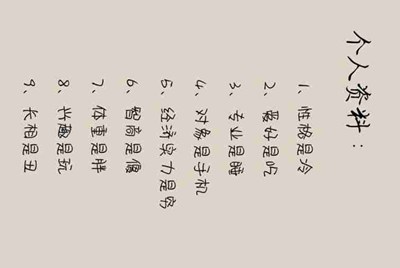 个人资料：
1、性格是冷
2、爱好是吃
3、专业是睡
4、对象是手机
5、经济实力是穷
6、智商是傻
7、体重是胖
8、兴趣是玩
9、长相是丑